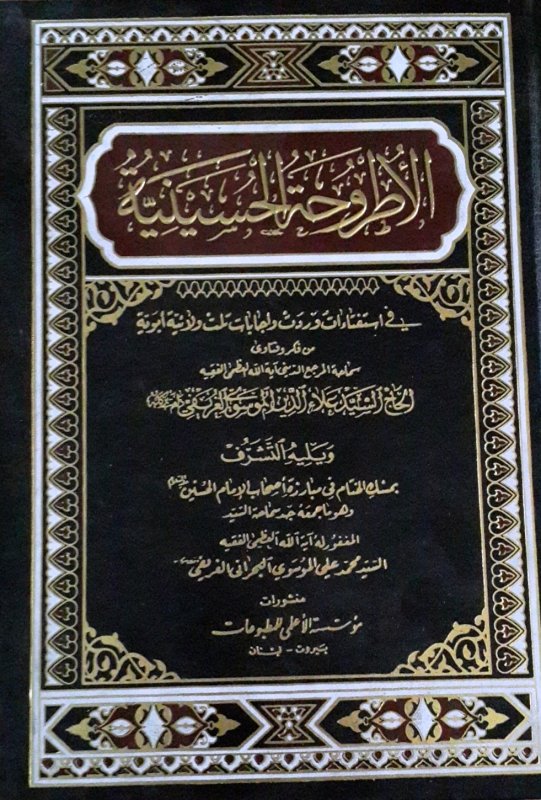 الأُطْرُوحَةُ الحُسَيْنِيَّةُ
في استفتاءات وردت وإجابات تلت ولائية أبوية
من فكر وفتاوى
سماحة المرجع الديني آية الله العظمى الفقيه
الحاج السيد علاء الدين الموسوي الغريفي
ويليه التشرف
بمسك الختام في مبارزة أصحاب الإمام الحسين
وهو ما جمعه جد سماحة السيد
المغفور له آية الله العظمى الفقيه
السيد محمد علي الموسوي البحراني الغريفي
منشورات
مؤسسة الأعلمي للمطبوعات
بيروت - لبنان